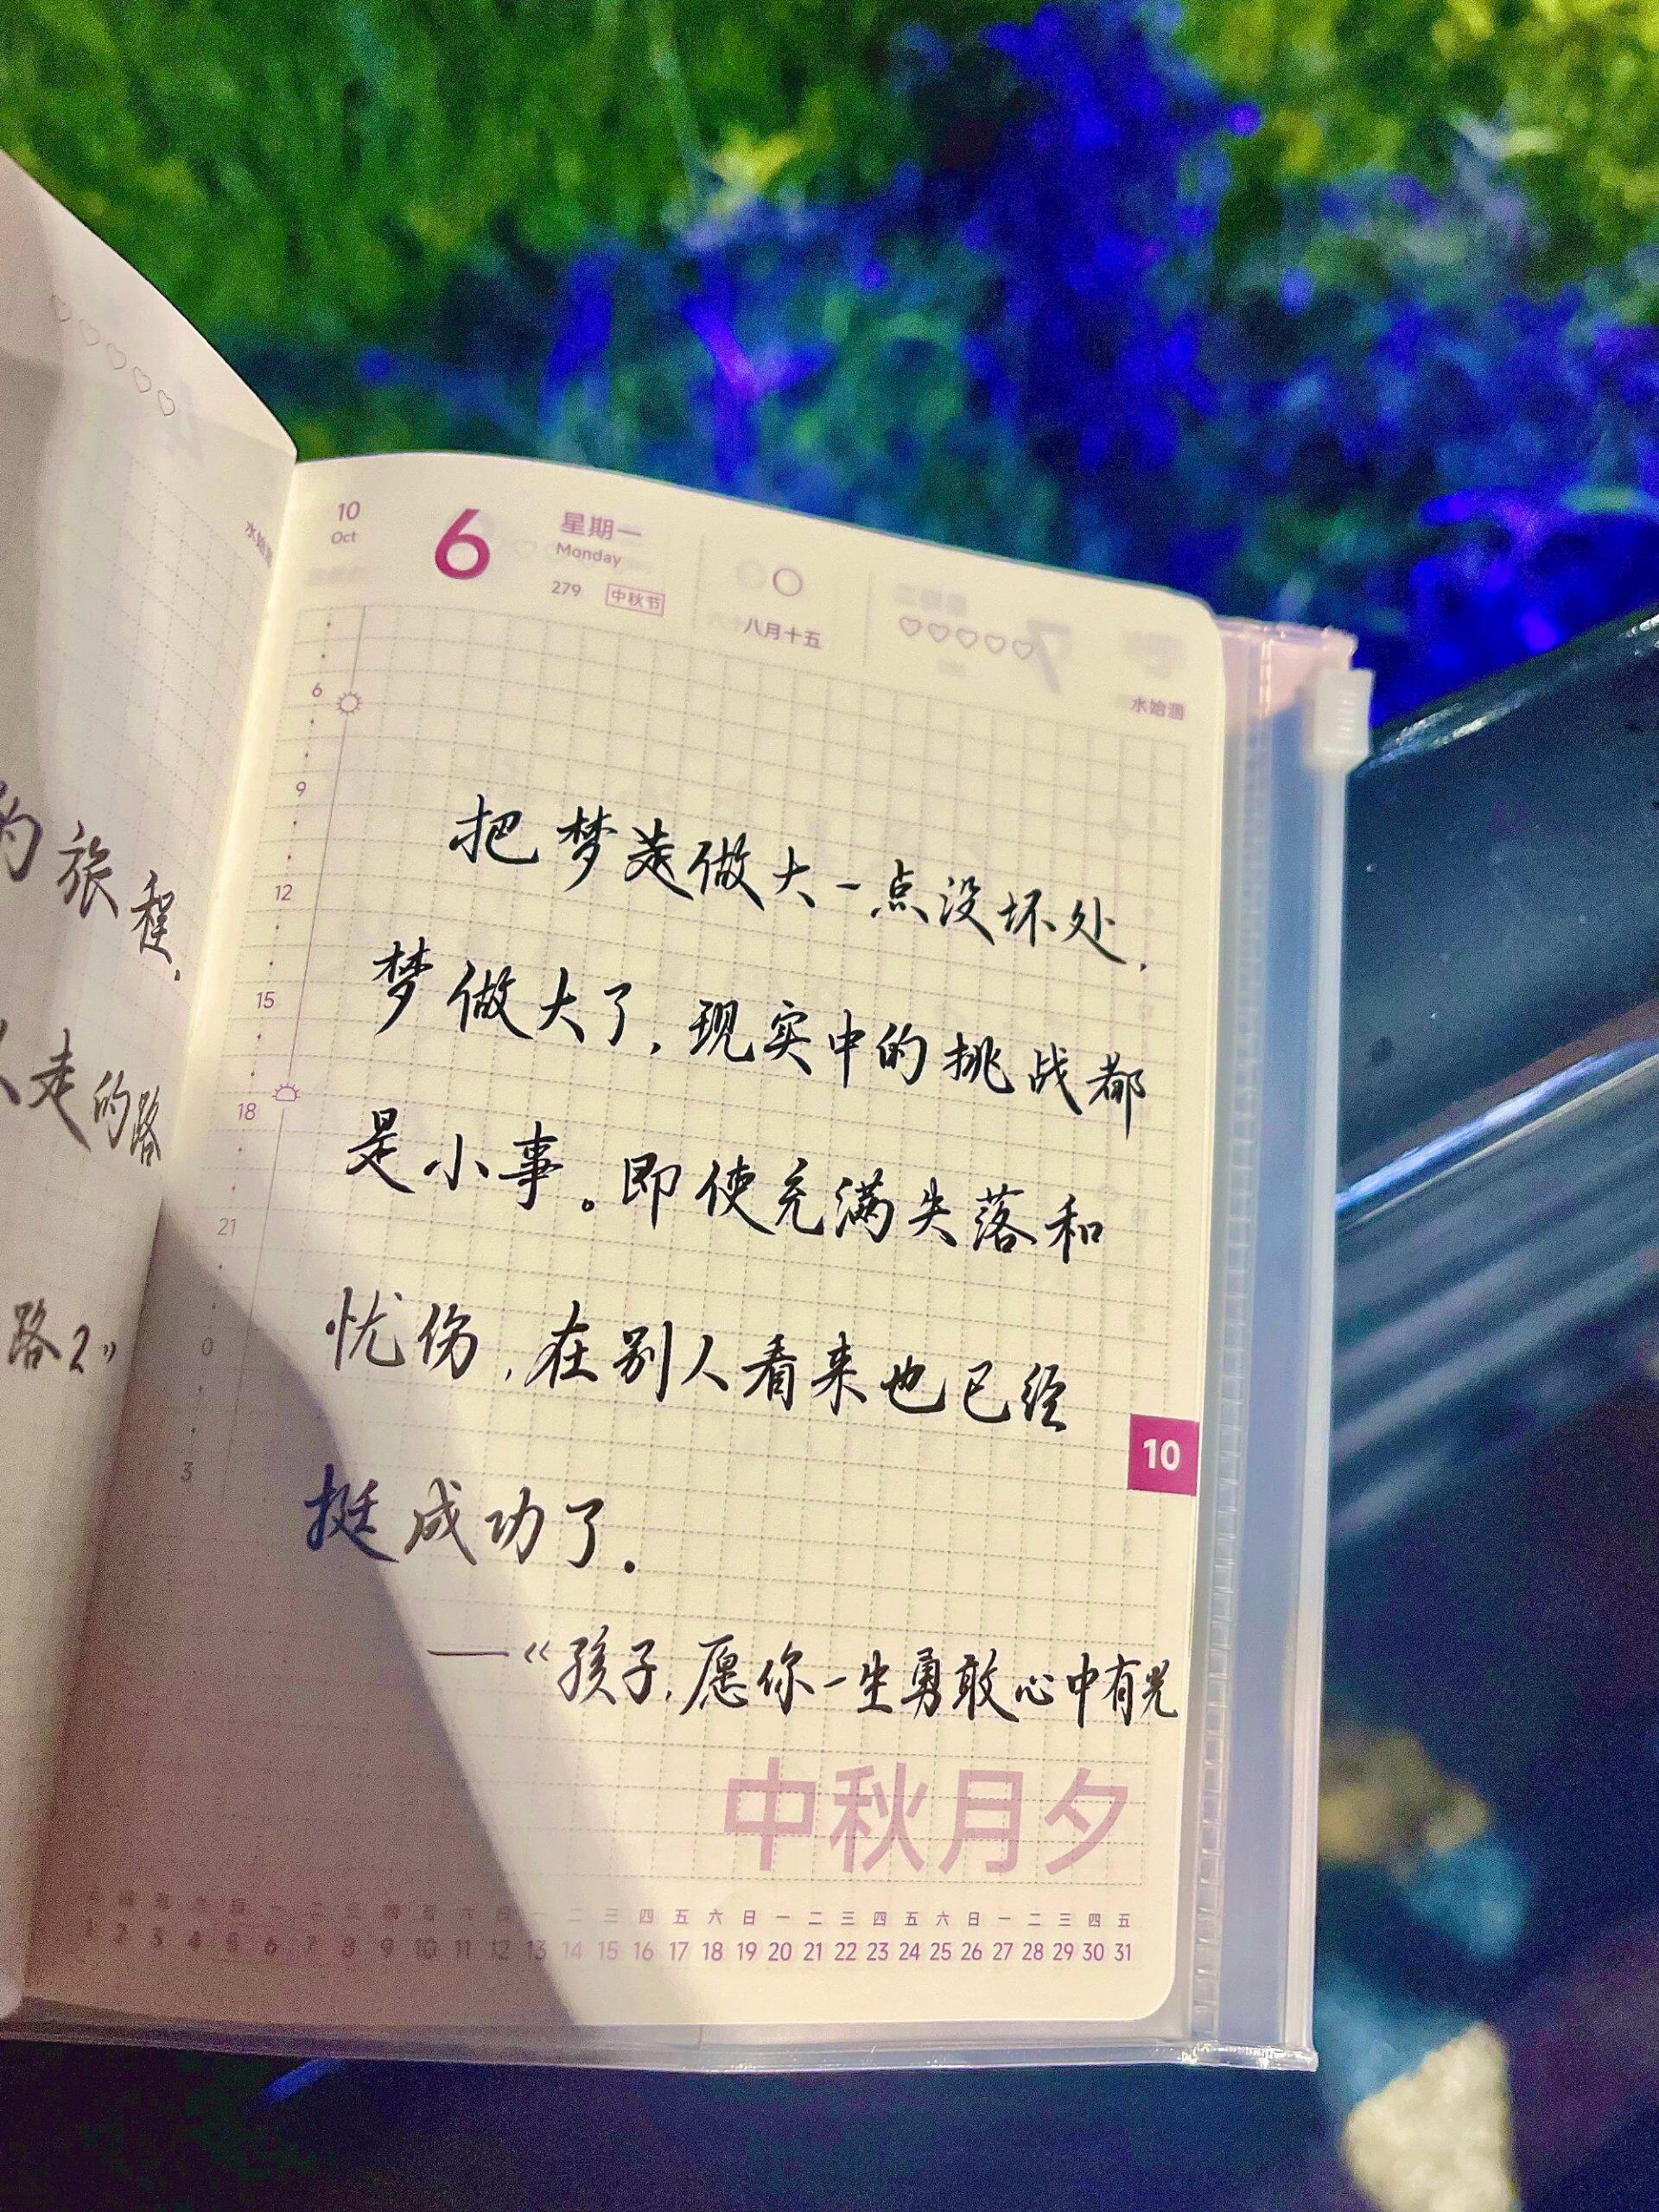 的旅程,
人走的路
路2》
10
Oct
6
星期一
Monday
279 中秋节
八月十五
水始涸
6
9
12
15
18
21
0
3
把梦走做大一点没坏处,
梦做大了,现实中的挑战都
是小事。即使充满失落和
忧伤,在别人看来也已经
挺成功了.
——《孩子,愿你一生勇敢心中有光
10
中秋月夕
三 四 五 六 日 一 二 三 四 五 六 日 一 二 三 四 五 六 日 一 二 三 四 五 六 日 一 二 三 四 五
1 2 3 4 5 6 7 8 9 10 11 12 13 14 15 16 17 18 19 20 21 22 23 24 25 26 27 28 29 30 31